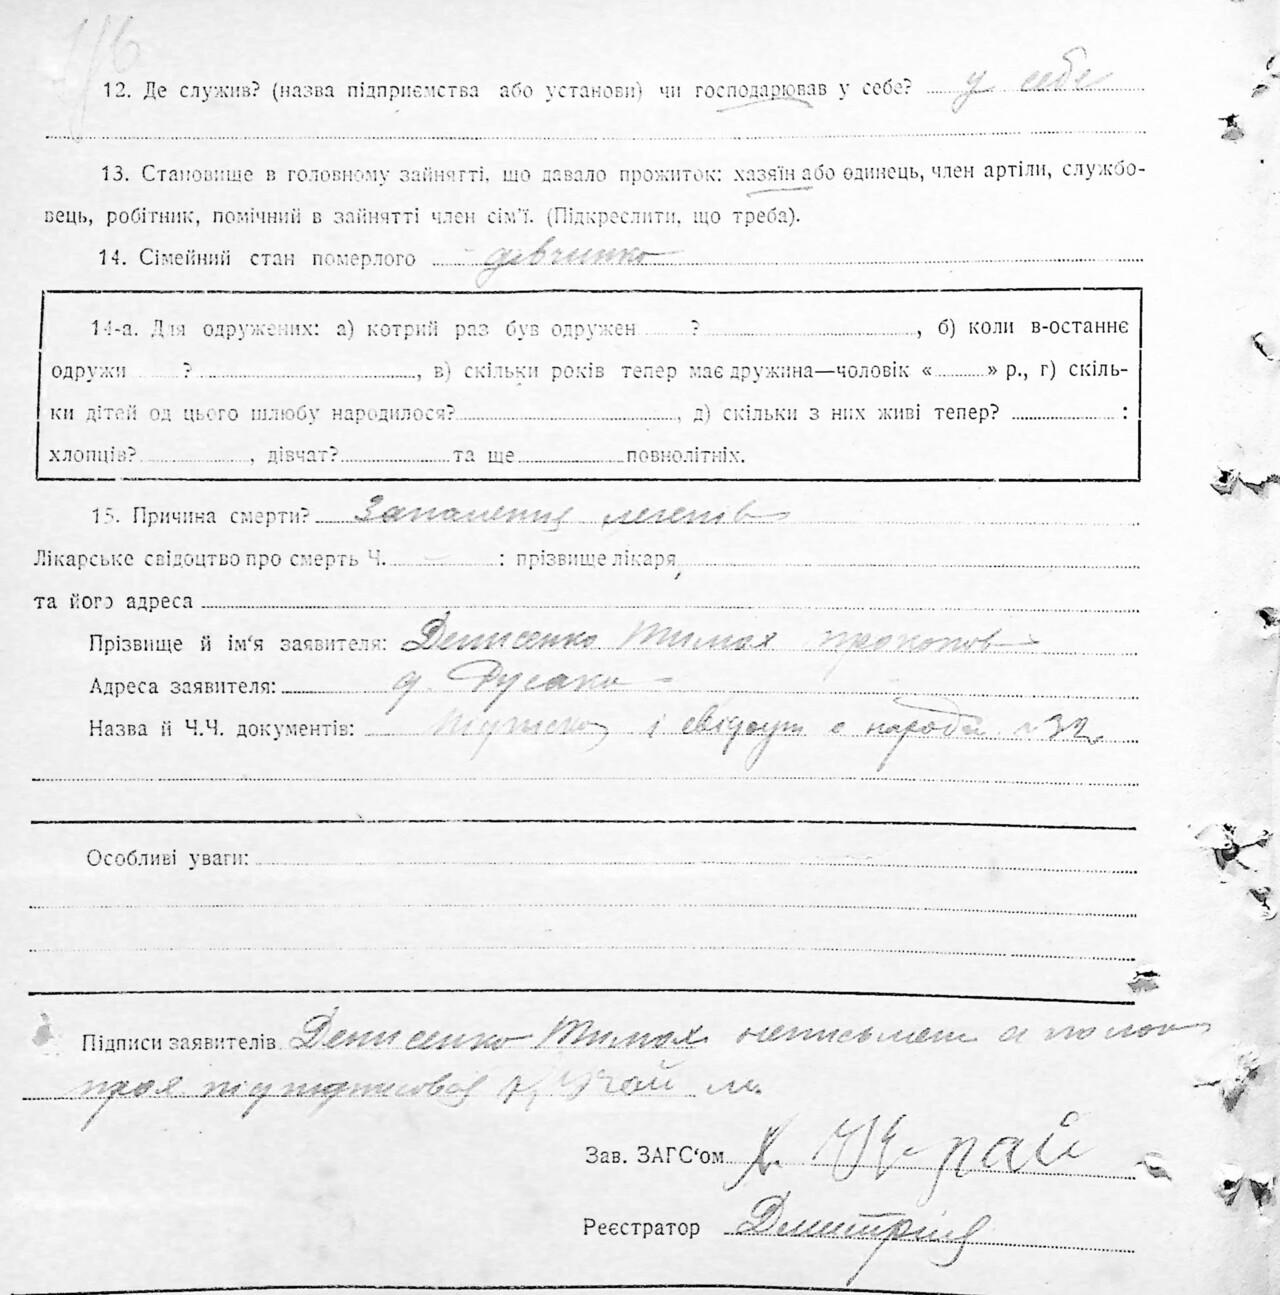 12. Де служив? (назва підприємства або установи) чи господарював у себе? у себе
13. Становище в головному зайнятті, що давало прожиток: хазяїн або одинець, член артіли, службо-
вець, робітник, помічний в зайнятті член сім'ї. (Підкреслити, що треба).
14. Сімейний стан померлого
14-а. Для одружених: а) котрий раз був одружен ?, б) коли в-останнє
одружи ?, в) скільки років тепер має дружина—чоловік « » р., г) скіль-
ки дітей од цього шлюбу народилося?, д) скільки з них живі тепер? :
хлопців?, дівчат? та ще повнолітніх.
15. Причина смерти? Запалення легенів
Лікарське свідоцтво про смерть Ч. : прізвище лікаря,
та його адреса
Прізвище й ім'я заявителя: Денисенко Тимох
Адреса заявителя:
Назва й Ч.Ч. документів: і 32
Особливі уваги:
Підписи заявителів Денисенко Тимох
Зав. ЗАГС'ом
Реєстратор